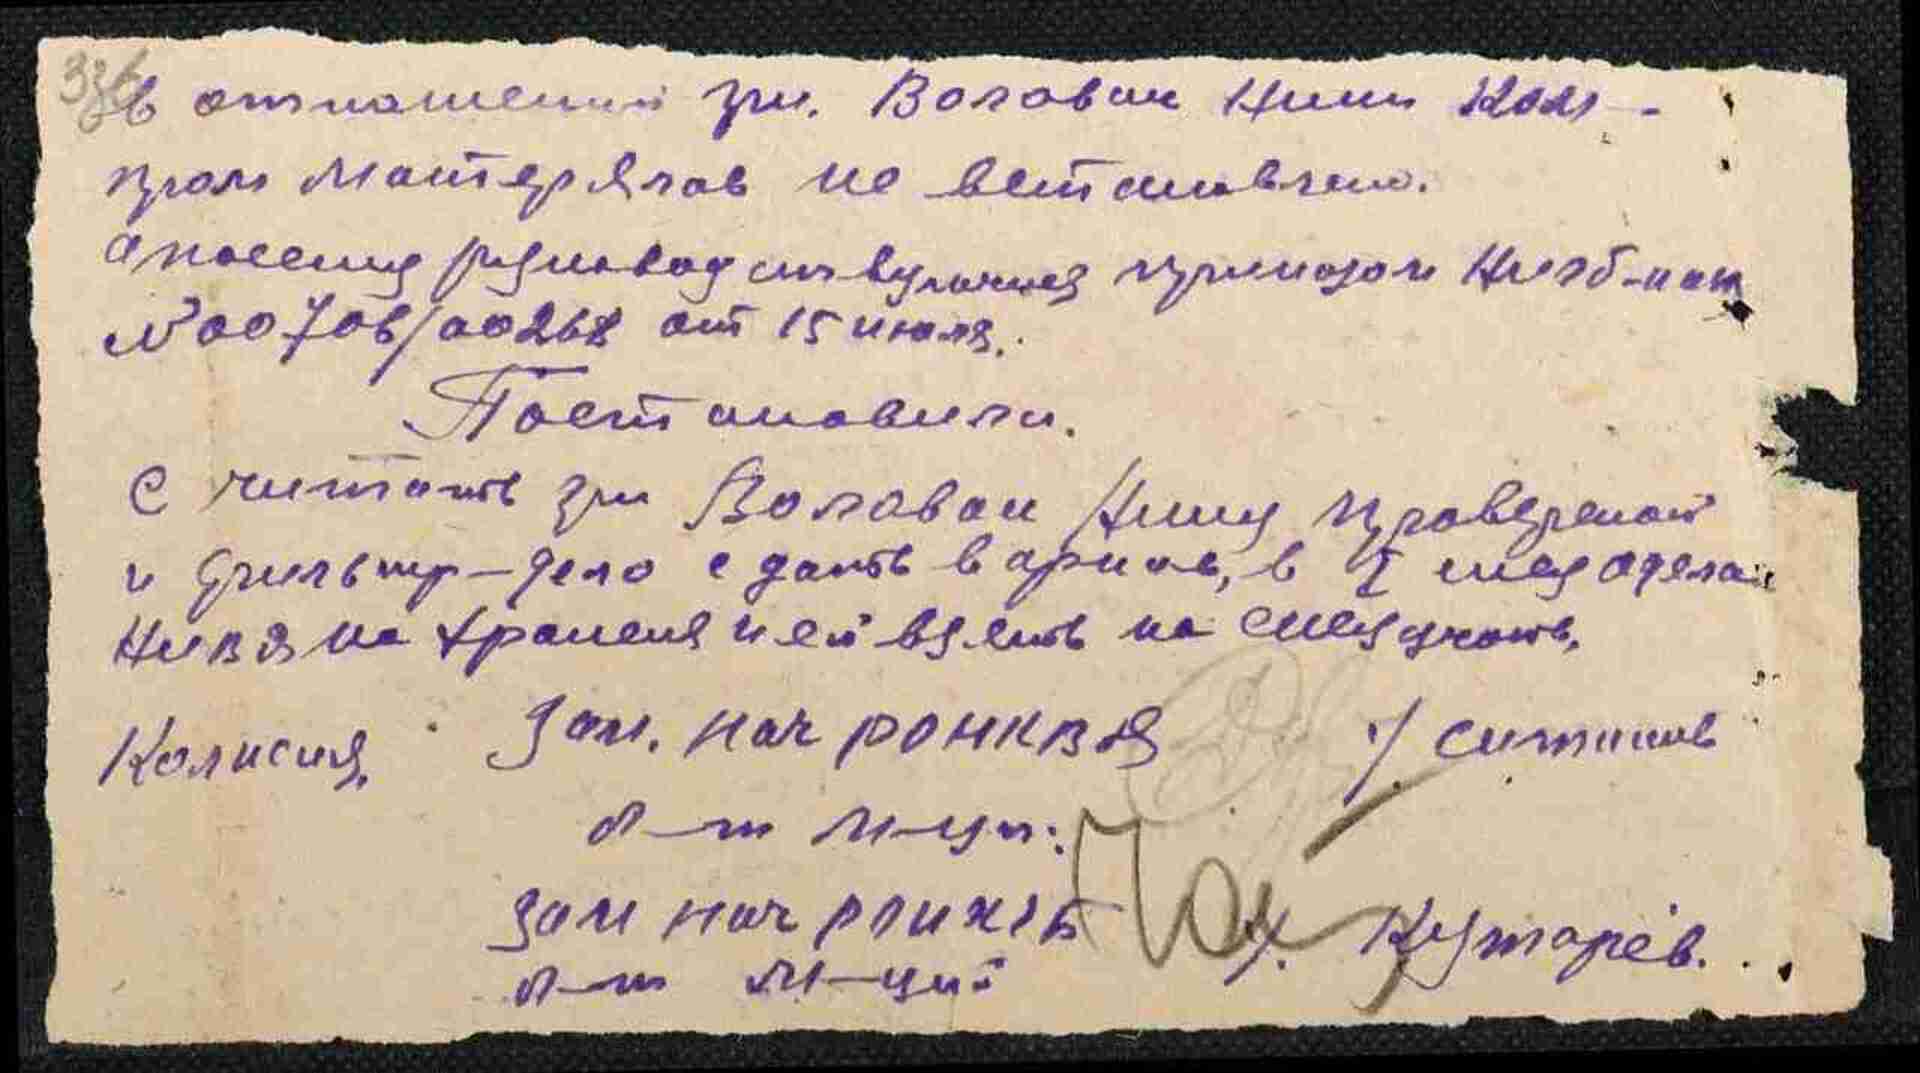 в отношении гр-н. Воловик Нины ком-
пром матерялов не встановлено.
а посему руководствуяся приказом НКГБ-НКВД
№ 00706/00268 от 15 июля.
Постановили.
Считать гр-н Воловик Нину проверенной
и фильтр-дело сдать в архив, в I спецотдела
НКВД на хранения и ей взять на спецучоть.
Комисия. Зам. нач РОНКВД / Ситников
л-т м-ции:
Зам нач РОНКГБ /. Кутарёв.
л-т м-ций